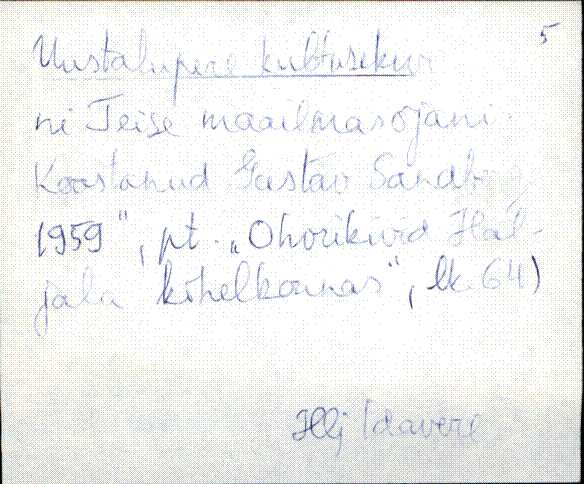 5
Uustalupere kultusekivi
ni Teise maailmasõjani.
Koostanud Gustav Sandberg
1959", pt. "Ohvrikivid Hal-
jala kihelkonnas", lk. 64)
Hlj Idavere